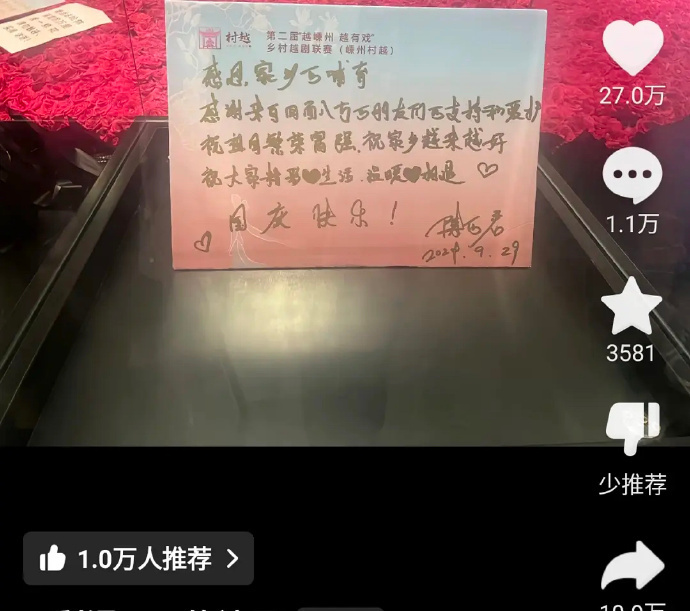 村越
第二届"越嵊州 越有戏"
乡村越剧联赛（嵊州村越）
感恩家乡的哺育
感谢来自四面八方的朋友们的支持和爱护
祝祖国繁荣富强，祝家乡越来越好
祝大家精彩生活，温暖相遇
国庆快乐！
陈丽君
2024.9.29
27.0万
1.1万
3581
少推荐
1.0万人推荐